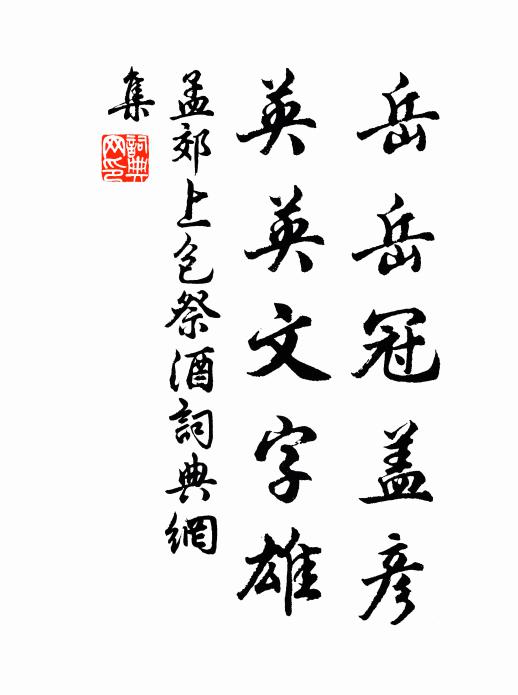 岳岳冠盖彦
英英文字雄
孟郊上包祭酒詞典網
集
詞典網印